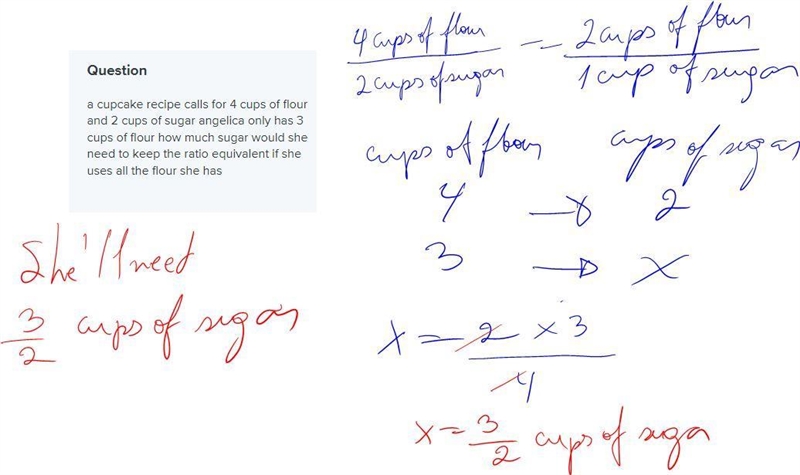 Question
a cupcake recipe calls for 4 cups of flour
and 2 cups of sugar angelica only has 3
cups of flour how much sugar would she
need to keep the ratio equivalent if she
uses all the flour she has
4 cups of flour / 2 cups of sugar = 2 cups of flour / 1 cup of sugar
cups of flour cups of sugar
4 → 2
3 → x
x = 2 × 3 / 4
x = 3/2 cups of sugar
She'll need
3/2 cups of sugar